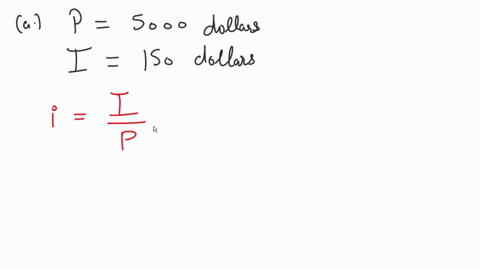 (a.) P = 5000 dollars
I = 150 dollars
i = I/P